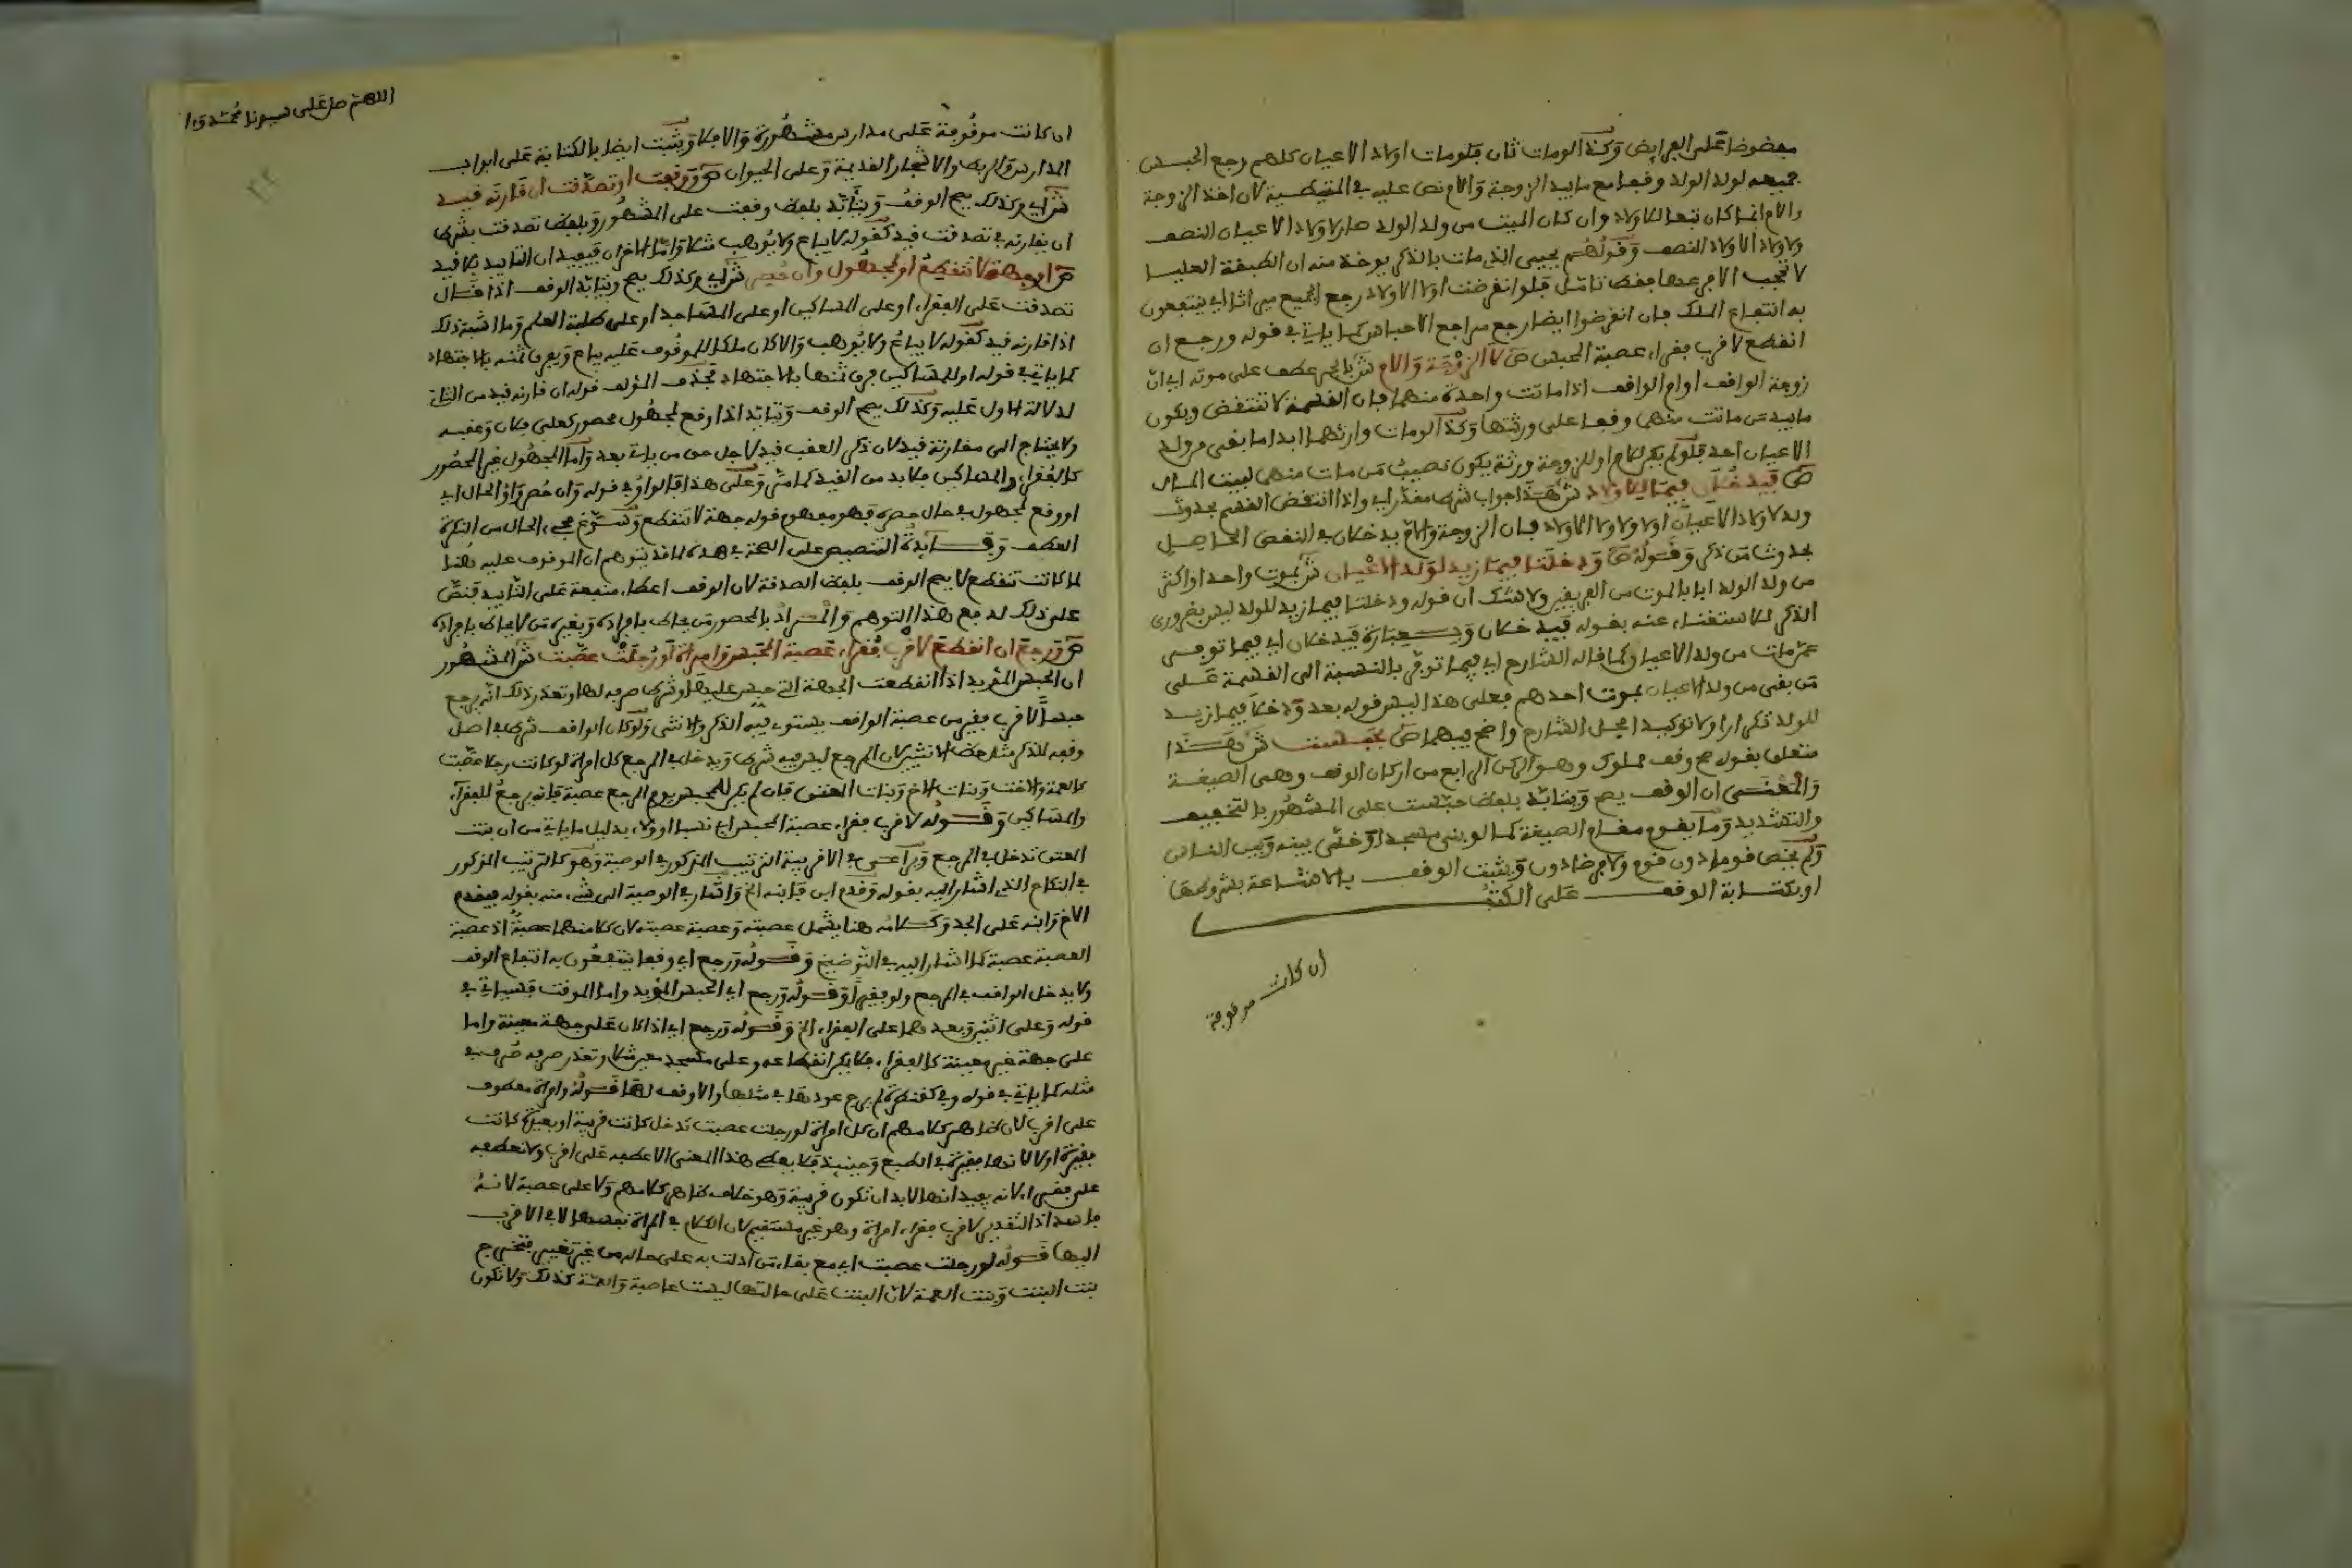 مفضوضا على الفرايض وكذا لو مات ثان فلو مات اولاد الاعيان كلهم رجع الحبس
جميعه لولد الولد وقفا مع ما بيد الزوجة والام نص عليه في المتيطية لان اخذ الزوجة
والام انما كان تبعا للاولاد وان كان الميت من ولد الولد صار لاولاد الاعيان النصف
ولاولاد الاولاد النصف وقولهم يحيى الذي مات بالذكر يوخذ منه ان الطبقة العليا
لا تحجب الا فرعها فقط تامل فلو انقرضت اولاد الاولاد رجع الجميع ميراثا اي ينتفعون
به انتفاع الملك فان انقرضوا ايضا رجع مراجع الاحباس كما ياتي في قوله ورجع ان
انقطع لاقرب فقراء عصبة المحبس ص لا الزوجة والام ش بالجر عطف على موته اي ان
زوجة الواقف او ام الواقف اذا ماتت واحدة منهما فان القسمة لا تنتقض ويكون
ما بيد من ماتت منهما وقفا على ورثتها وكذا لو مات وارثهما ابدا ما بقي من ولد
الاعيان احد فلو لم يكن للام او للزوجة ورثة يكون نصيب من مات منهما لبيت المال
ص فيدخلان فيما للاولاد ش هذا جواب شرط مقدر اي واذا انتقض القسم بحدوث
ولد لاولاد الاعيان او لاولاد الاولاد فان الزوجة والام يدخلان في النقص الحاصل
بحدوث من ذكر وقوله ص ودخلتا فيما زيد لولد الاعيان ش بموت واحد او اكثر
من ولد الولد اي بالموت من الفريقين ولا شك ان قوله ودخلتا فيما زيد للولد ليس بضروري
الذكر للاستغناء عنه بقوله فيدخلان وبعبارة فيدخلان اي فيما توفى
عمن مات من ولد الاعيان كما قاله الشارح اي فيما توفي بالنسبة الى القسمة على
من بقي من ولد الاعيان بموت احدهم فعلى هذا ليس قوله بعد ودخلا فيما زيد
للولد تكرارا ولا توكيدا لحل الشارح واضح فيهما ص بحبست ش هذا
متعلق بقوله صح وقف مملوك وهو الركن الرابع من اركان الوقف وهي الصيغة
والمعنى ان الوقف يصح ويتابد بلفظ حبست على المشهور بالتخفيف
والتشديد وما يقوم مقام الصيغة كما لو بنى مسجدا وخلى بينه وبين الناس
ولم يخص قوما دون قوم ولا فرضا دون ويثبت الوقف بالاشاعة بشروطها
او بكتابة الوقف على الكتب
ان كانت موقوفة
اللهم صل على سيدنا محمد
٢٢
ان كانت موقوفة على مدارس مشهورة والا فلا ويثبت ايضا بالكتابة على ابواب
المدارس والربط والاشجار القديمة وعلى الحيوان ص ووقفت او تصدقت ان قارنه قيد
ش اي وكذلك يصح الوقف ويتابد بلفظ وقفت على المشهور وبلفظ تصدقت بشرط
ان يقارنه في تصدقت قيد كقوله لا يباع ولا يوهب مثلا واما الاخران فيفيدان التابيد بلا قيد
ص او جهة لا تنقطع او لمجهول وان حصر ش اي وكذلك يصح ويتابد الوقف اذا قال
تصدقت على الفقراء او على المساكين او على المساجد او على طلبة العلم وما اشبه ذلك
اذا قارنه قيد كقوله لا يباع ولا يوهب والا كان ملكا للموقوف عليه يباع ويفرق ثمنه بالاجتهاد
كما ياتي في قوله او للمساكين فرق ثمنها بالاجتهاد فحذف المؤلف قوله ان قارنه قيد من الثاني
لدلالة الاول عليه وكذلك يصح الوقف ويتابد اذا وقع لمجهول محصور كعلى فلان وعقبه
ولا يحتاج الى مقارنة قيد لان ذكر العقب قيد لاجل حق من ياتي بعد واما المجهول غير المحصور
كالفقراء والمساكين فلا بد من القيد كما مر وعلى هذا فالواو في قوله وان حصر واو الحال اي
او وقع لمجهول في حال حصره فهو مفهوم قوله جهة لا تنقطع وسوغ مجيء الحال من النكرة
العطف وفائدة التنصيص على الصحة في هذه لما قد يتوهم ان الموقوف عليه هنا
لما كانت تنقطع لا يصح الوقف بلفظ الصدقة لان الوقف اعطاء منفعة على التابيد فنص
على ذلك لدفع هذا التوهم والمراد بالمحصور من يحاط بافراده وبغيره من لا يحاط بافراده
ص ورجع ان انقطع لاقرب فقراء عصبة المحبس وامراة لو رجلت عصبت ش المشهور
ان الحبس المؤبد اذا انقطعت الجهة التي حبس عليها او شرط صرفه لها وتعذر ذلك انه يرجع
حبسا لاقرب فقير من عصبة الواقف يستوي فيه الذكر والانثى ولو كان الواقف شرط في اصل
وقفه للذكر مثل حظ الانثيين لان المرجع ليس فيه شرط ويدخل في المرجع كل امراة لو كانت رجلا عصبت
كالعمة والاخت وبنات الاخ وبنات المعتق فان لم يكن للمحبس يوم المرجع عصبة فانه يرجع للفقراء
والمساكين وقوله لاقرب فقراء عصبة المحبس اي نسبا او ولاء بدليل ما ياتي من ان بنت
المعتق تدخل في المرجع ويراعى في الاقربية الترتيب المذكور في الوصية وهو كالترتيب المذكور
في النكاح الذي اشار اليه بقوله وقدم ابن فابنه الخ واشار في الوصية الى شيء منه بقوله فيقدم
الاخ وابنه على الجد وكلامه هنا يشمل عصبته وعصبة عصبته لان كلا منهما عصبة اذ عصبة
العصبة عصبة كما اشار اليه في التوضيح وقوله ورجع اي وقفا ينتفعون به انتفاع الوقف
ولا يدخل الواقف في المرجع ولو فقيرا وقوله ورجع اي الحبس المؤبد واما الموقت فسياتي في
قوله وعلى اثنين وبعدهما على الفقراء الخ وقوله ورجع اي اذا كان على جهة معينة واما
على جهة غير معينة كالفقراء فلا يمكن انقطاعه وعلى مسجد معين مثلا وتعذر صرفه صرف في
مثله كما ياتي في قوله وفي كقنطرة لم يرج عودها في مثلها والا وقف لها قوله وامراة معطوف
على اقرب لان ظاهر كلامهم ان كل امراة لو رجلت عصبت تدخل كانت قريبة او بعيدة كانت
فقيرة او لا لانها فقيرة في الطبع وحينئذ فلا يعطي هذا المعنى الا عطفه على اقرب ولا تعطفه
على فقراء لانه يفيد انها لا بد ان تكون قريبة وهو خلاف ظاهر كلامهم ولا على عصبة لانه
فاسد اذ التقدير لاقرب فقراء امراة وهو غير مستقيم لان الكلام في المراة نفسها لا في الاقرب
اليها قوله لو رجلت عصبت اي مع بقاء من ادلت به على حاله من غير تغيير فتخرج
بنت البنت وبنت العمة لان البنت على حالتها ليست عاصبة والعمة كذلك ولا تكون